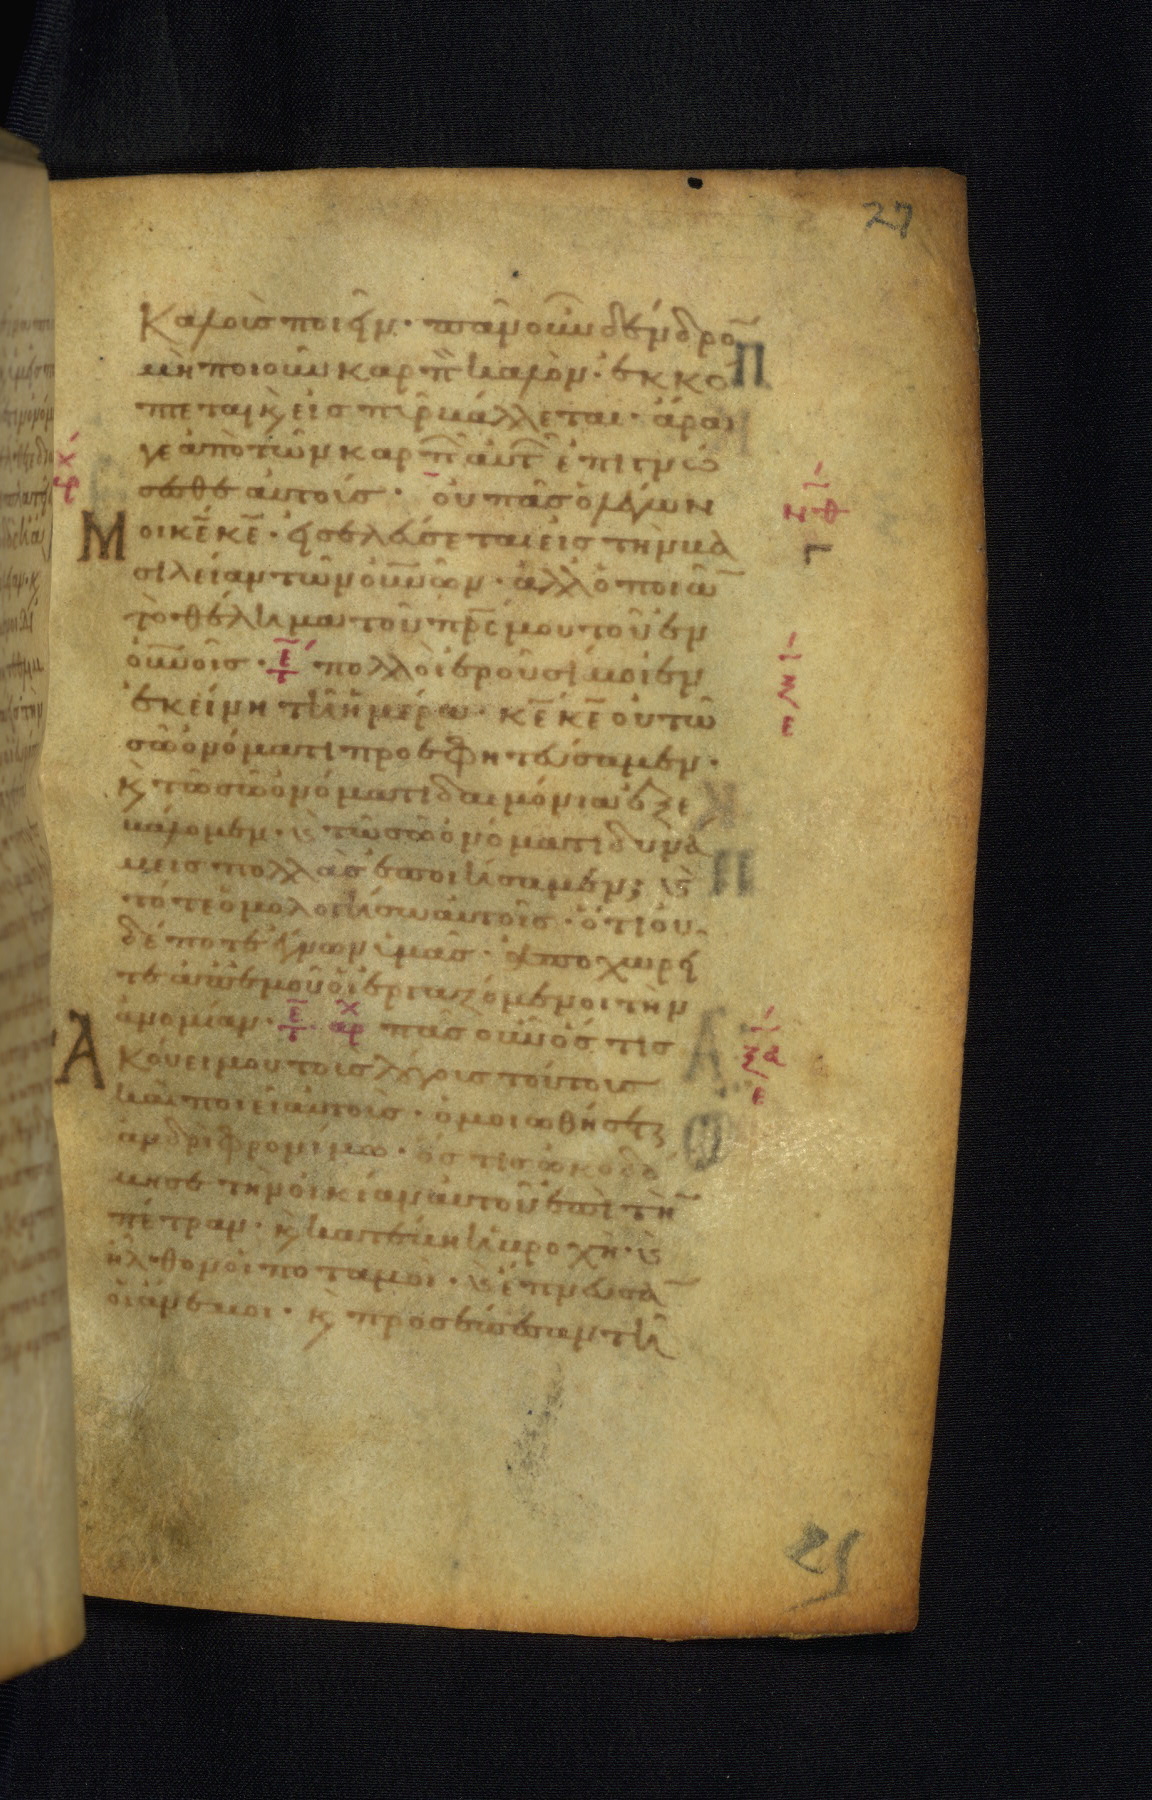 27
καλοὺς ποιεῖν· πᾶν οὖν δένδρο̅
μὴ ποιοῦν καρπ̅ καλὸν· ἐκκο
πεται κ̀ εἰς πῦρ βάλλεται· ἄρα
γε ἀπὸ τῶν καρπ̅ αὐτ̅ ἐπιγνώ
σεσθε αὐτούς· οὐ πᾶς ὁ λέγων
Μοι κ̅ε κ̅ε· εἰσελεύσεται εἰς τὴν βα
σιλείαν τῶν οὐ̅νῶν· ἀλλ ὁ ποιῶ̅
τὸ θέλημα τοῦ π̅ρ̅ς μου τοῦ ἐν
οὐ̅νοῖς· πολλοὶ ἐροῦσί μοι ἐν
ἐκείνη τῆ ἡμέρα· κ̅ε κ̅ε οὐ τῶ
σῶ ὀνόματι προεφητεύσαμεν·
κ̀ τῶ σῶ ὀνόματι δαιμόνια ἐξε
βάλομεν· κ̀ τῶ σῶ ὀνόματι δυνά
μεις πολλὰς ἐποιήσαμεν; κ̀
τότε ὁμολογήσω αὐτοῖς· ὅτι οὐ
δέποτε ἔγνων ὑμᾶς· ἀποχωρεῖ
τε ἀπ ἐμοῦ οἱ ἐργαζόμενοι τὴν
ἀνομίαν· πᾶς οὖν ὅς τις
Ακούει μου τοὺς λόγους τούτους
καὶ ποιεῖ αὐτοὺς· ὁμοιωθήσετ
ἀνδρὶ φρονίμω· ὅς τις ὠκοδό
μησε τὴν οἰκίαν αὐτοῦ ἐπὶ τὴ̅
πέτραν· κ̀ κατέβη ἡ βροχὴ· κ̀
ἦλθον οἱ ποταμοὶ· κ̀ ἔπνευσα̅
οἱ ἄνεμοι· κ̀ προσέπεσαν τῆ
25